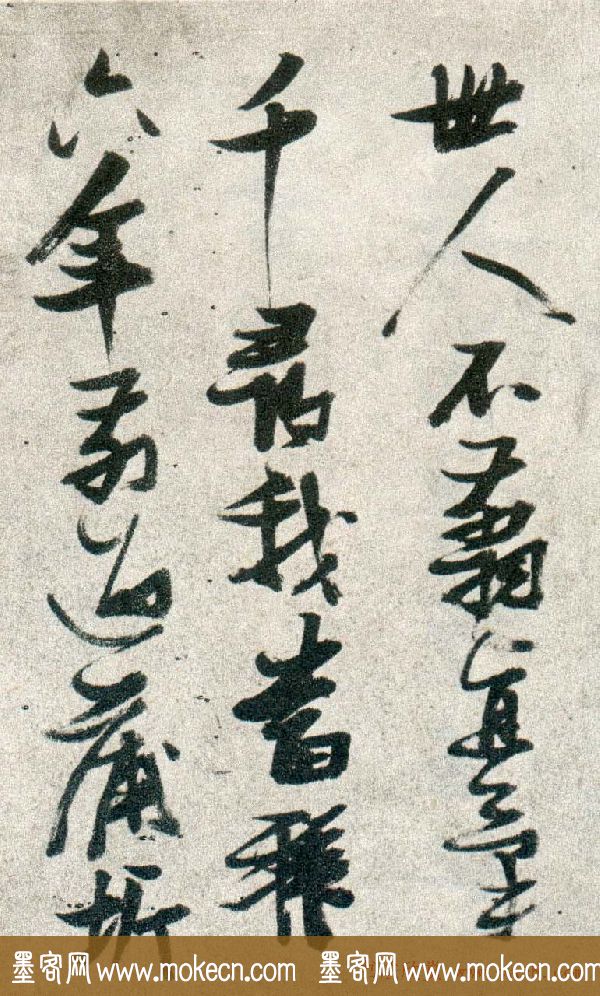 世人不
千尋我昔
六年前過蒲圻
墨客网 www.mokecn.com 墨客网 www.mokecn.com